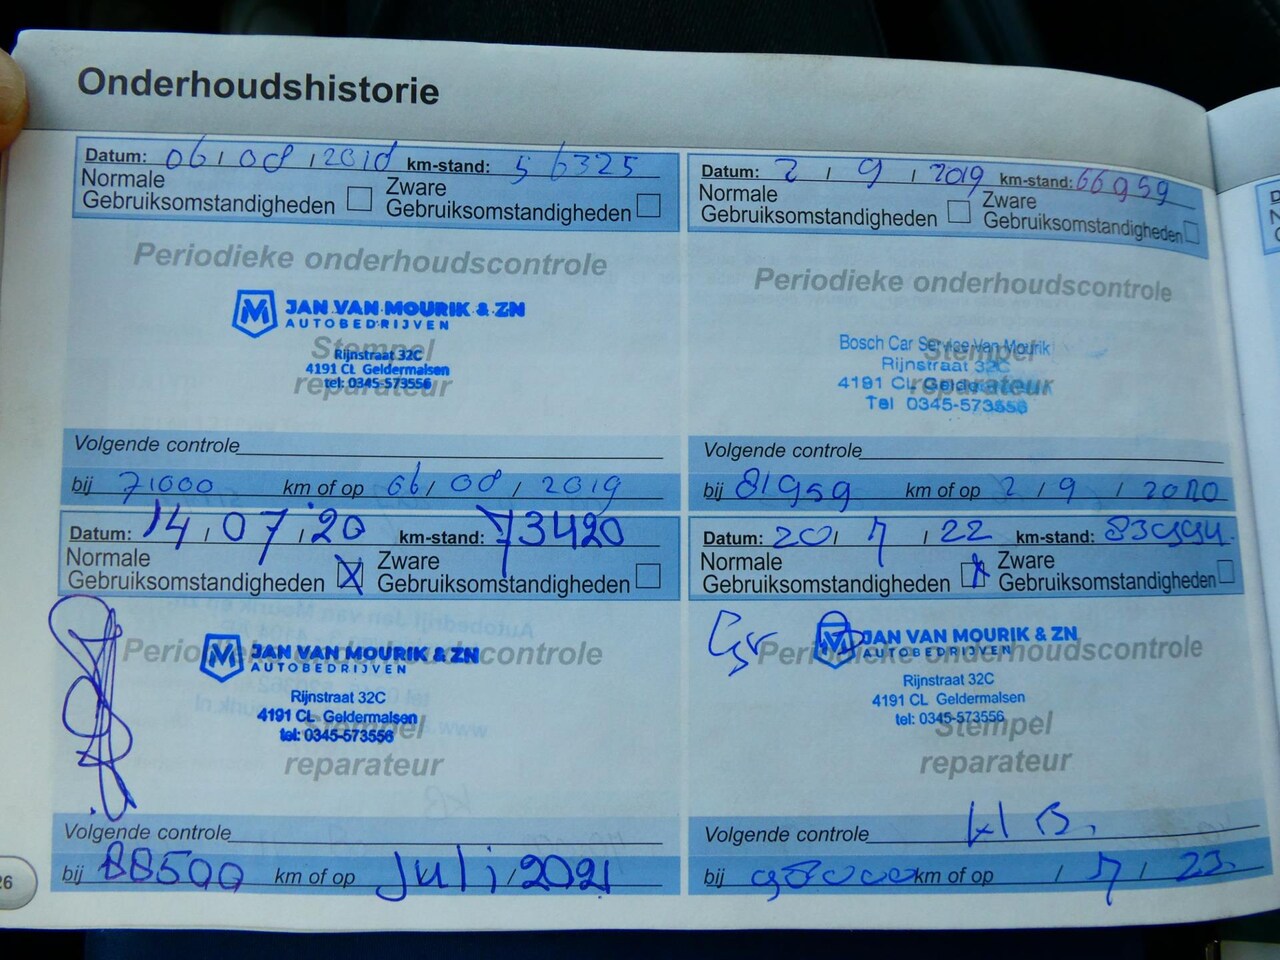 Onderhoudshistorie
Datum: 06 / 08 / 2018 km-stand: 56325
Normale Gebruiksomstandigheden
Zware Gebruiksomstandigheden
Periodieke onderhoudscontrole
JAN VAN MOURIK & ZN
AUTOBEDRIJVEN
Stempel
Rijnstraat 32C
4191 CL Geldermalsen
reparateur
tel: 0345-573556
Volgende controle
bij 71000 km of op 06 / 08 / 2019
Datum: 2 / 9 / 2019 km-stand: 66959
Normale Gebruiksomstandigheden
Zware Gebruiksomstandigheden
Periodieke onderhoudscontrole
Bosch Car Service Van Mourik
Stempel
Rijnstraat 32C
4191 CL
reparateur
Tel 0345-573556
Volgende controle
bij 81959 km of op 2 / 9 / 2020
Datum: 14 / 07 / 20 km-stand: 73420
Normale Gebruiksomstandigheden X
Zware Gebruiksomstandigheden
Periodieke onderhoudscontrole
JAN VAN MOURIK & ZN
AUTOBEDRIJVEN
Rijnstraat 32C
4191 CL Geldermalsen
Stempel
tel: 0345-573556
reparateur
Volgende controle
bij 88500 km of op Juli / 2021
Datum: 20 / 7 / 22 km-stand:
Normale Gebruiksomstandigheden
Zware Gebruiksomstandigheden
Periodieke onderhoudscontrole
JAN VAN MOURIK & ZN
AUTOBEDRIJVEN
Rijnstraat 32C
4191 CL Geldermalsen
tel: 0345-573556
Stempel
reparateur
Volgende controle
bij 98000 km of op / 7 / 23
26